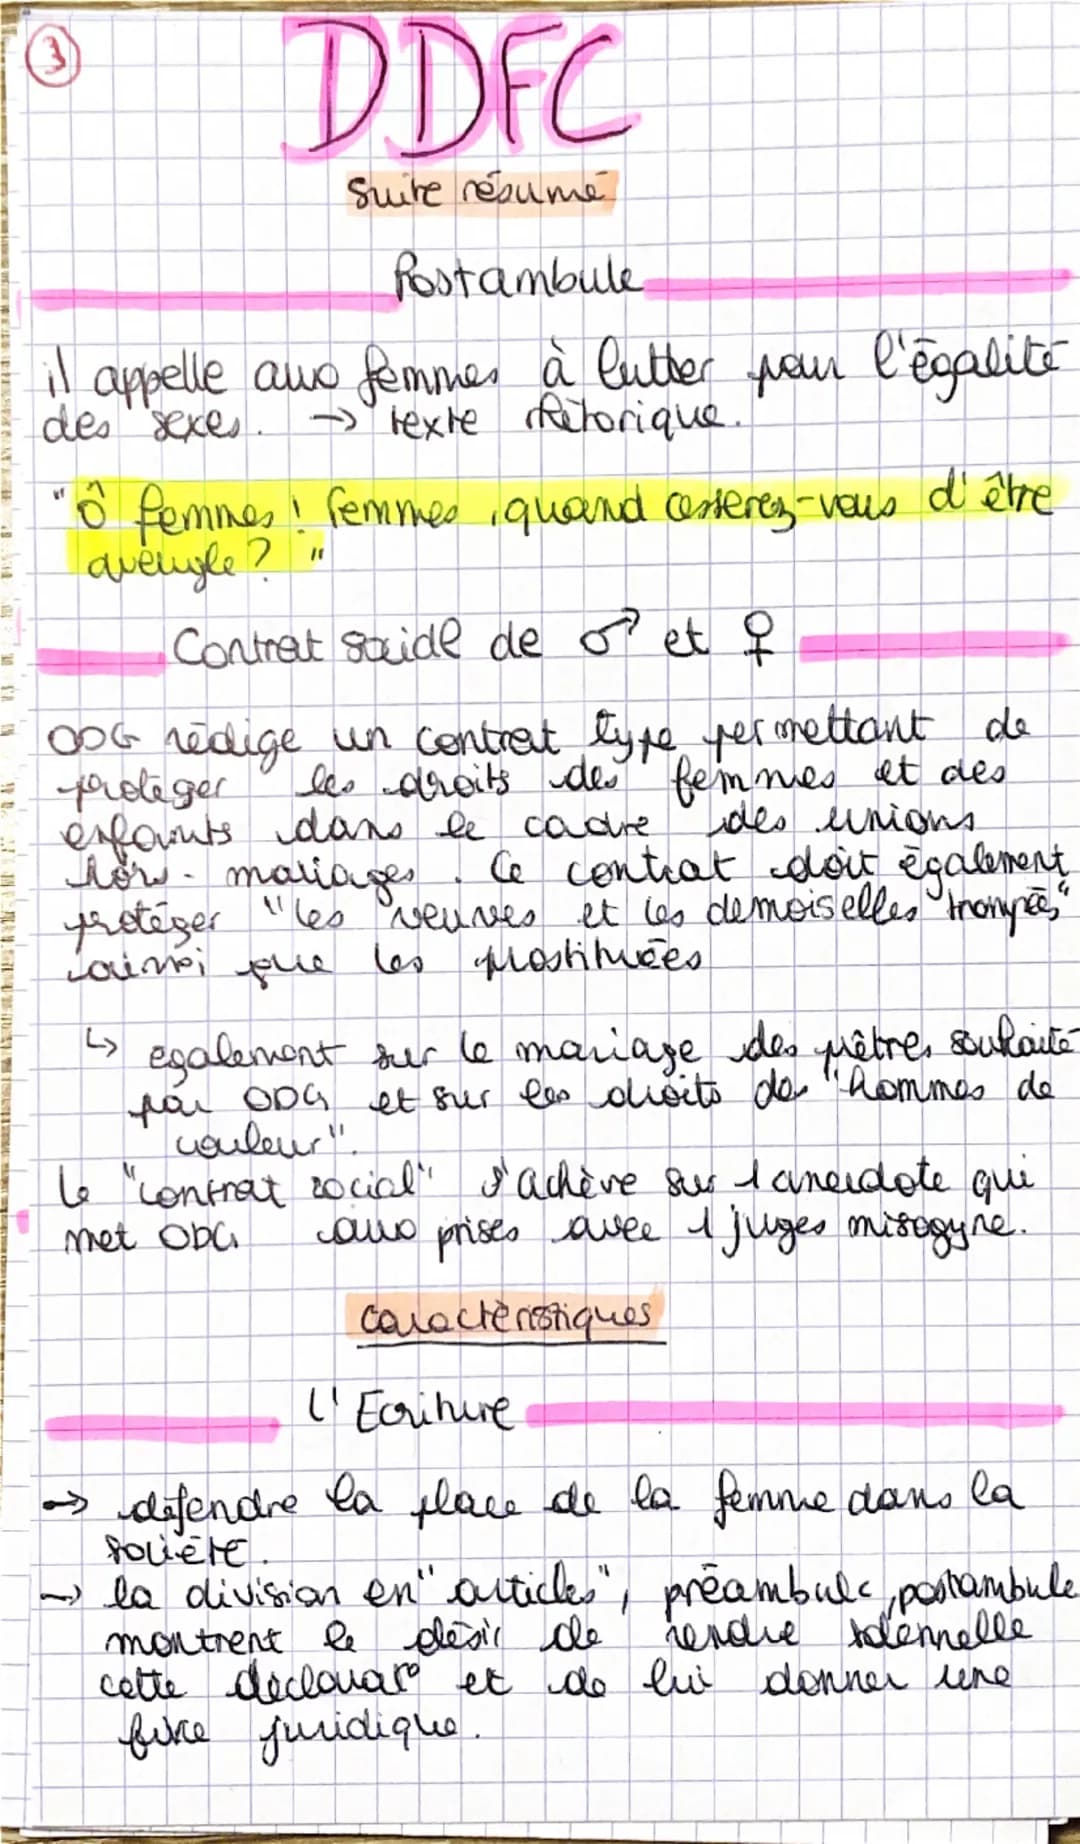 3
DDFC
suite résumé
Postambule
il appelle aux femmes à lutter pour l'égalité
des sexes. → texte rhétorique.
"Ô femmes ! femmes, quand cesserez-vous d'être
aveugle ? "
Contrat social de ♂ et ♀
ODG rédige un contrat type permettant de
protéger les droits des femmes et des
enfants dans le cadre des unions
hors-mariages. Ce contrat doit également
protéger "les veuves et les demoiselles trompées"
ainsi que les prostituées
↳ également sur le mariage des prêtres souhaité
par ODG et sur les droits des "hommes de
couleur".
Le "contrat social" s'achève sur 1 anecdote qui
met ODG aux prises avec 1 juges misogyne.
caractéristiques
L'Ecriture
→ défendre la place de la femme dans la
société.
→ la division en "articles", préambule, postambule
montrent le désir de rendre solennelle
cette déclarat° et de lui donner une
force juridique.